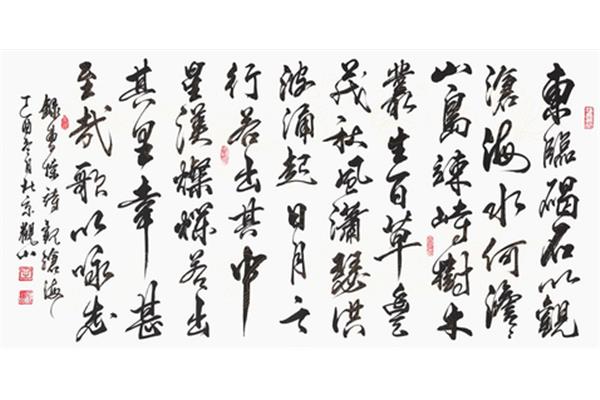 東臨碣石以觀
滄海水何澹々
山島竦峙樹木
叢生百草豐
茂秋風瀟瑟洪
波涌起日月之
行若出其中
星漢燦爛若出
其里幸甚
至哉歌以咏志
錄曹操詩觀滄海
丁酉冬月